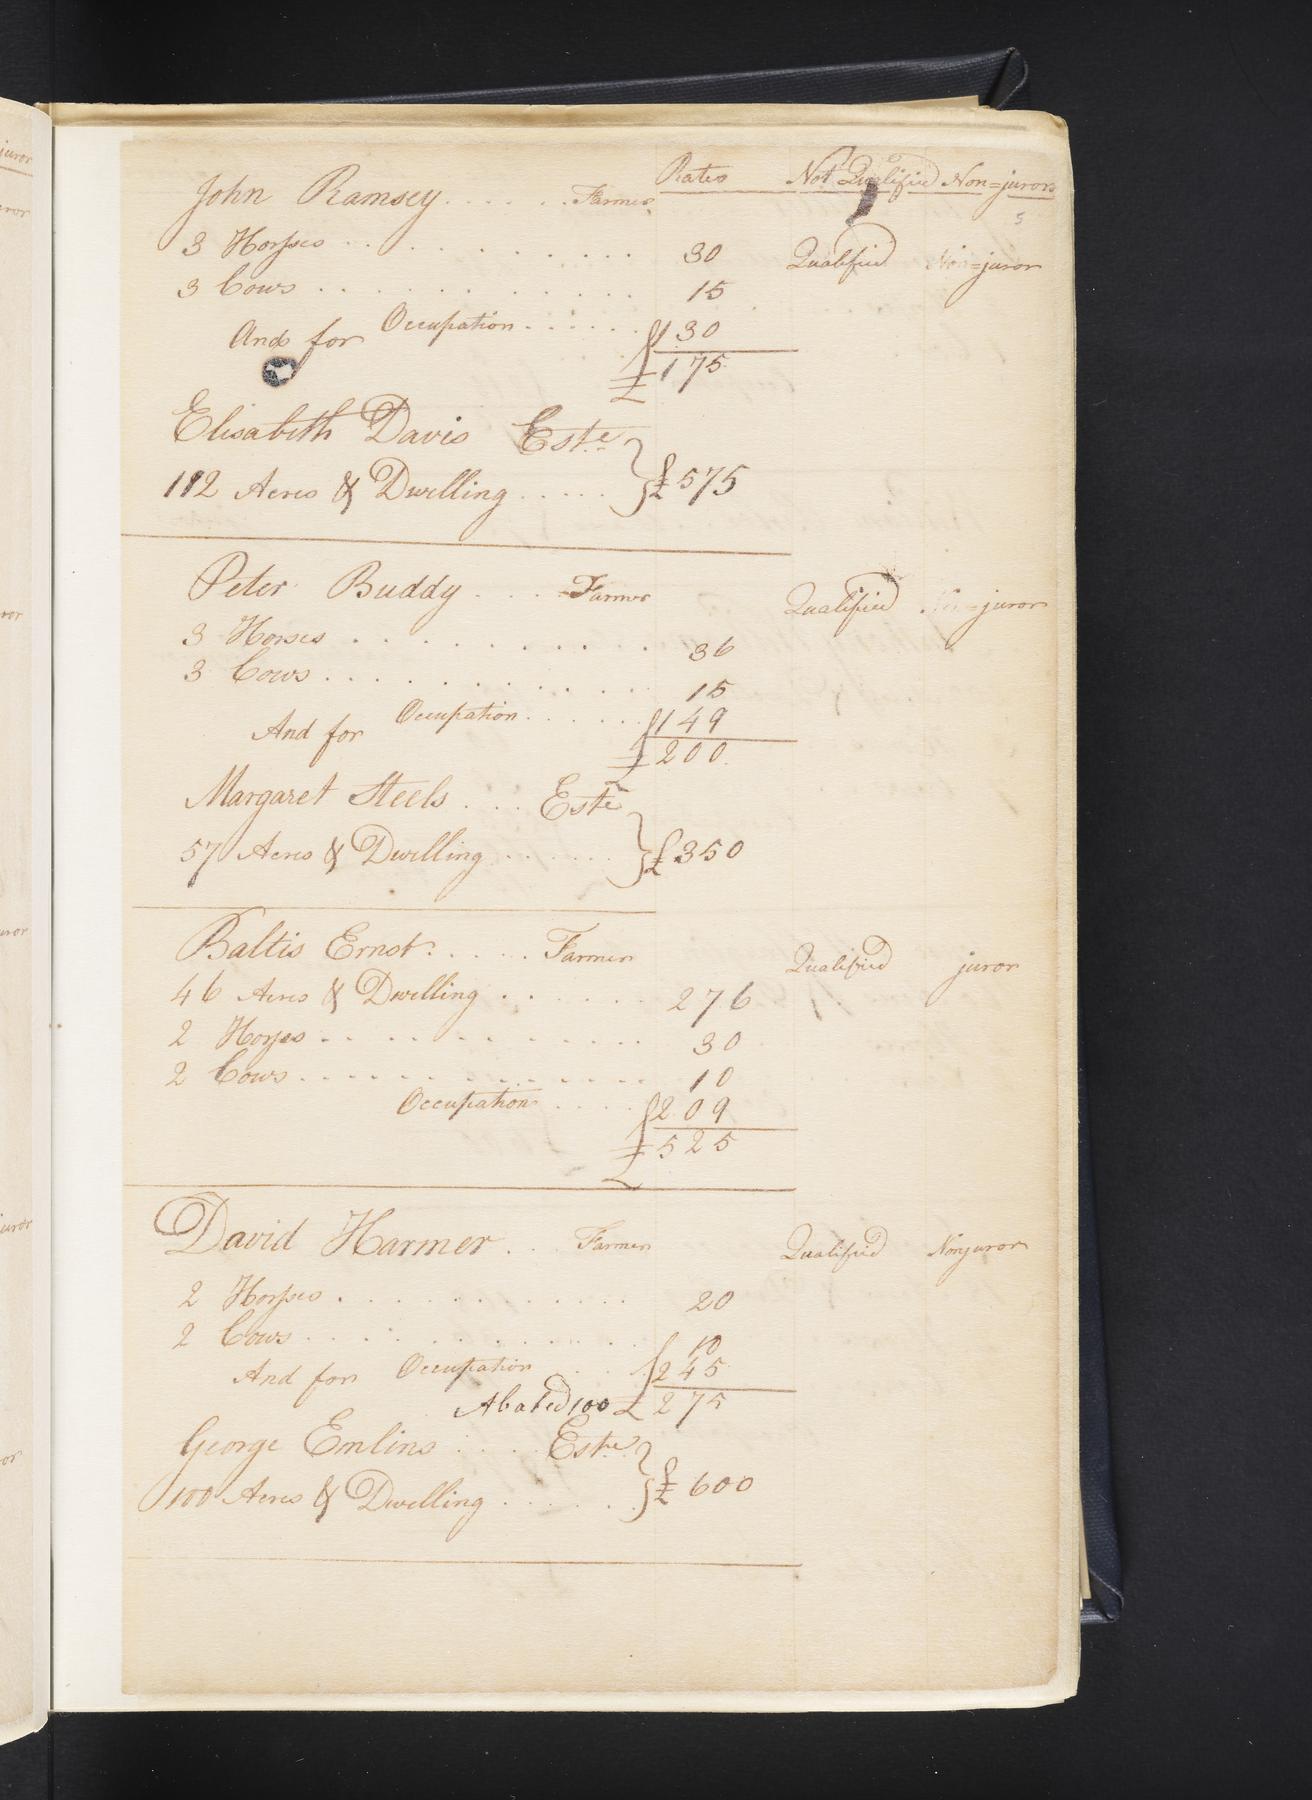 Rates Not Qualified Non=jurors
John Ramsey...... Farmer
5
3 Horses.......... 30 Qualified Non=juror
3 Cows............ 15
And for Occupation...... 130
£ 175
Elisabeth Davis Este
112 Acres & Dwelling..... £ 575
Peter Buddy.... Farmer Qualified Non=juror
3 Horses.......... 36
3 Cows............ 15
And for Occupation...... 149
£ 200
Margaret Steels.... Este
57 Acres & Dwelling...... £ 350
Baltis Ernst...... Farmer Qualified juror
46 Acres & Dwelling...... 276
2 Horses............ 30
2 Cows............. 10
Occupation.... 209
£ 525
David Harmer... Farmer Qualified Nonjuror
2 Horses........... 20
2 Cows............ 10
And for Occupation... 245
Abated 100 £ 275
George Emlins..... Este
100 Acres & Dwelling..... £ 600
juror
juror